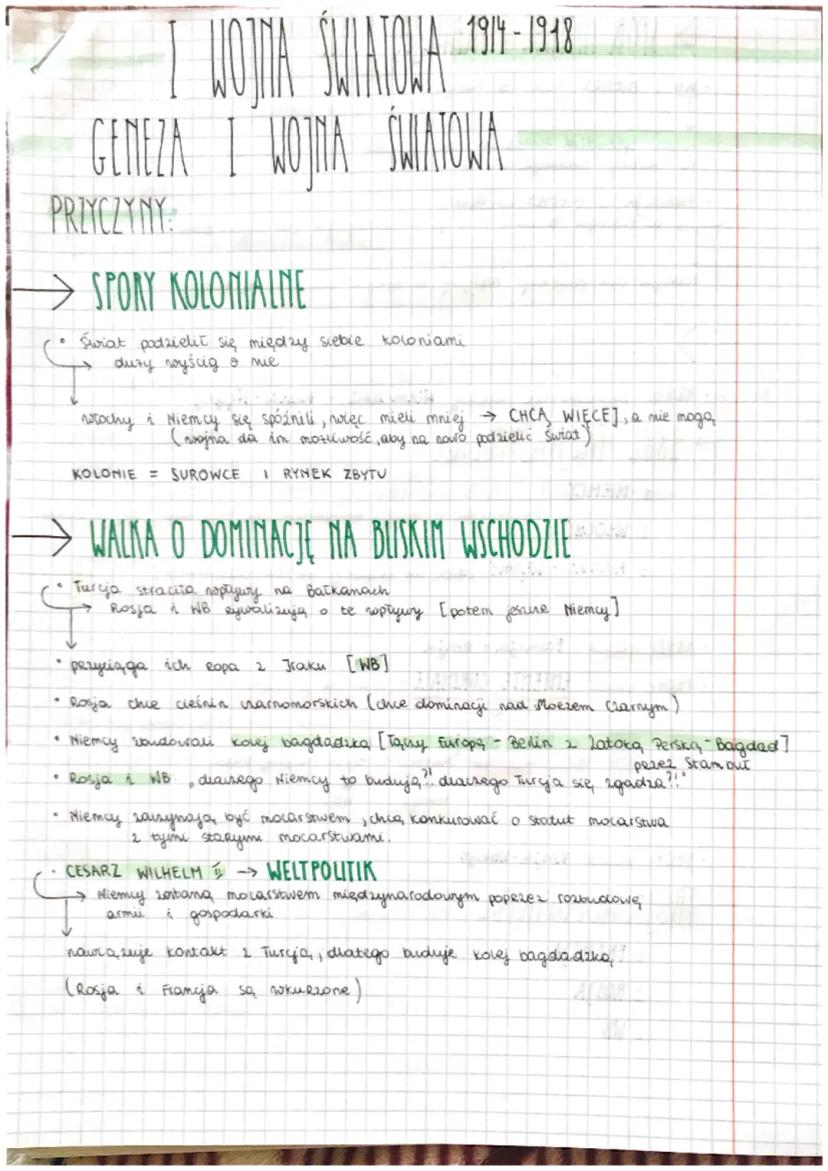 I WOJNA ŚWIATOWA 1914-1918
GENEZA I WOJNA ŚWIATOWA
PRZYCZYNY:
→ SPORY KOLONIALNE
• Świat podzielił się między siebie koloniami
→ duży wyścig o nie
Włochy i Niemcy się spóźnili, więc mieli mniej → CHCĄ WIĘCEJ, a nie mogą
(wojna da im możliwość, aby na nowo podzielić świat)
KOLONIE = SUROWCE I RYNEK ZBYTU
→ WALKA O DOMINACJĘ NA BLISKIM WSCHODZIE
• Turcja straciła wpływy na Bałkanach
→ Rosja i WB rywalizują o te wpływy [potem jeszcze Niemcy]
• przyciąga ich ropa z Iraku [WB]
• Rosja chce cieśnin czarnomorskich (chce dominacji nad Morzem Czarnym)
• Niemcy zbudowali kolej bagdadzką [Łączy Europę - Berlin z Zatoką Perską - Bagdad]
przez Stambuł
• Rosja i WB „dlaczego Niemcy to budują?! dlaczego Turcja się zgadza?!"
• Niemcy zaczynają być mocarstwem, chcą konkurować o statut mocarstwa
z tymi starymi mocarstwami.
• CESARZ WILHELM II → WELTPOLITIK
→ Niemcy zostaną mocarstwem międzynarodowym poprzez rozbudowę
armii i gospodarki
nawiązuje kontakt z Turcją, dlatego buduje kolej bagdadzką
(Rosja i Francja są wkurzone)